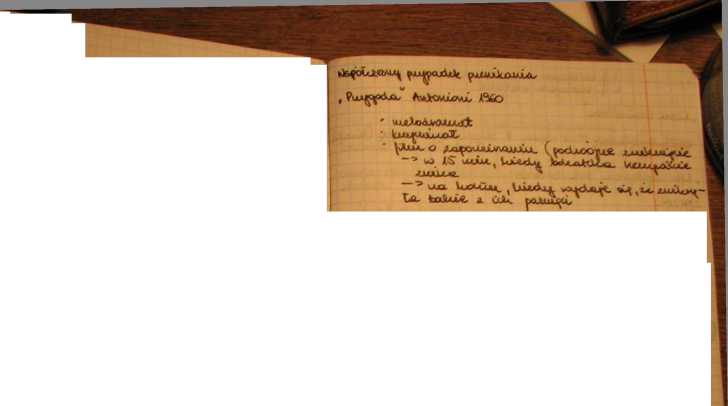 Współczesny przypadek przenikania
„Przygoda" Antonioni 1960
· melodramat
· kryminał
· film o zapominaniu (podwójne zniknięcie
-> w 25 min, kiedy bohaterka naprawdę
znika
-> na końcu, kiedy wydaje się, że zniknę-
ła także z ich pamięci